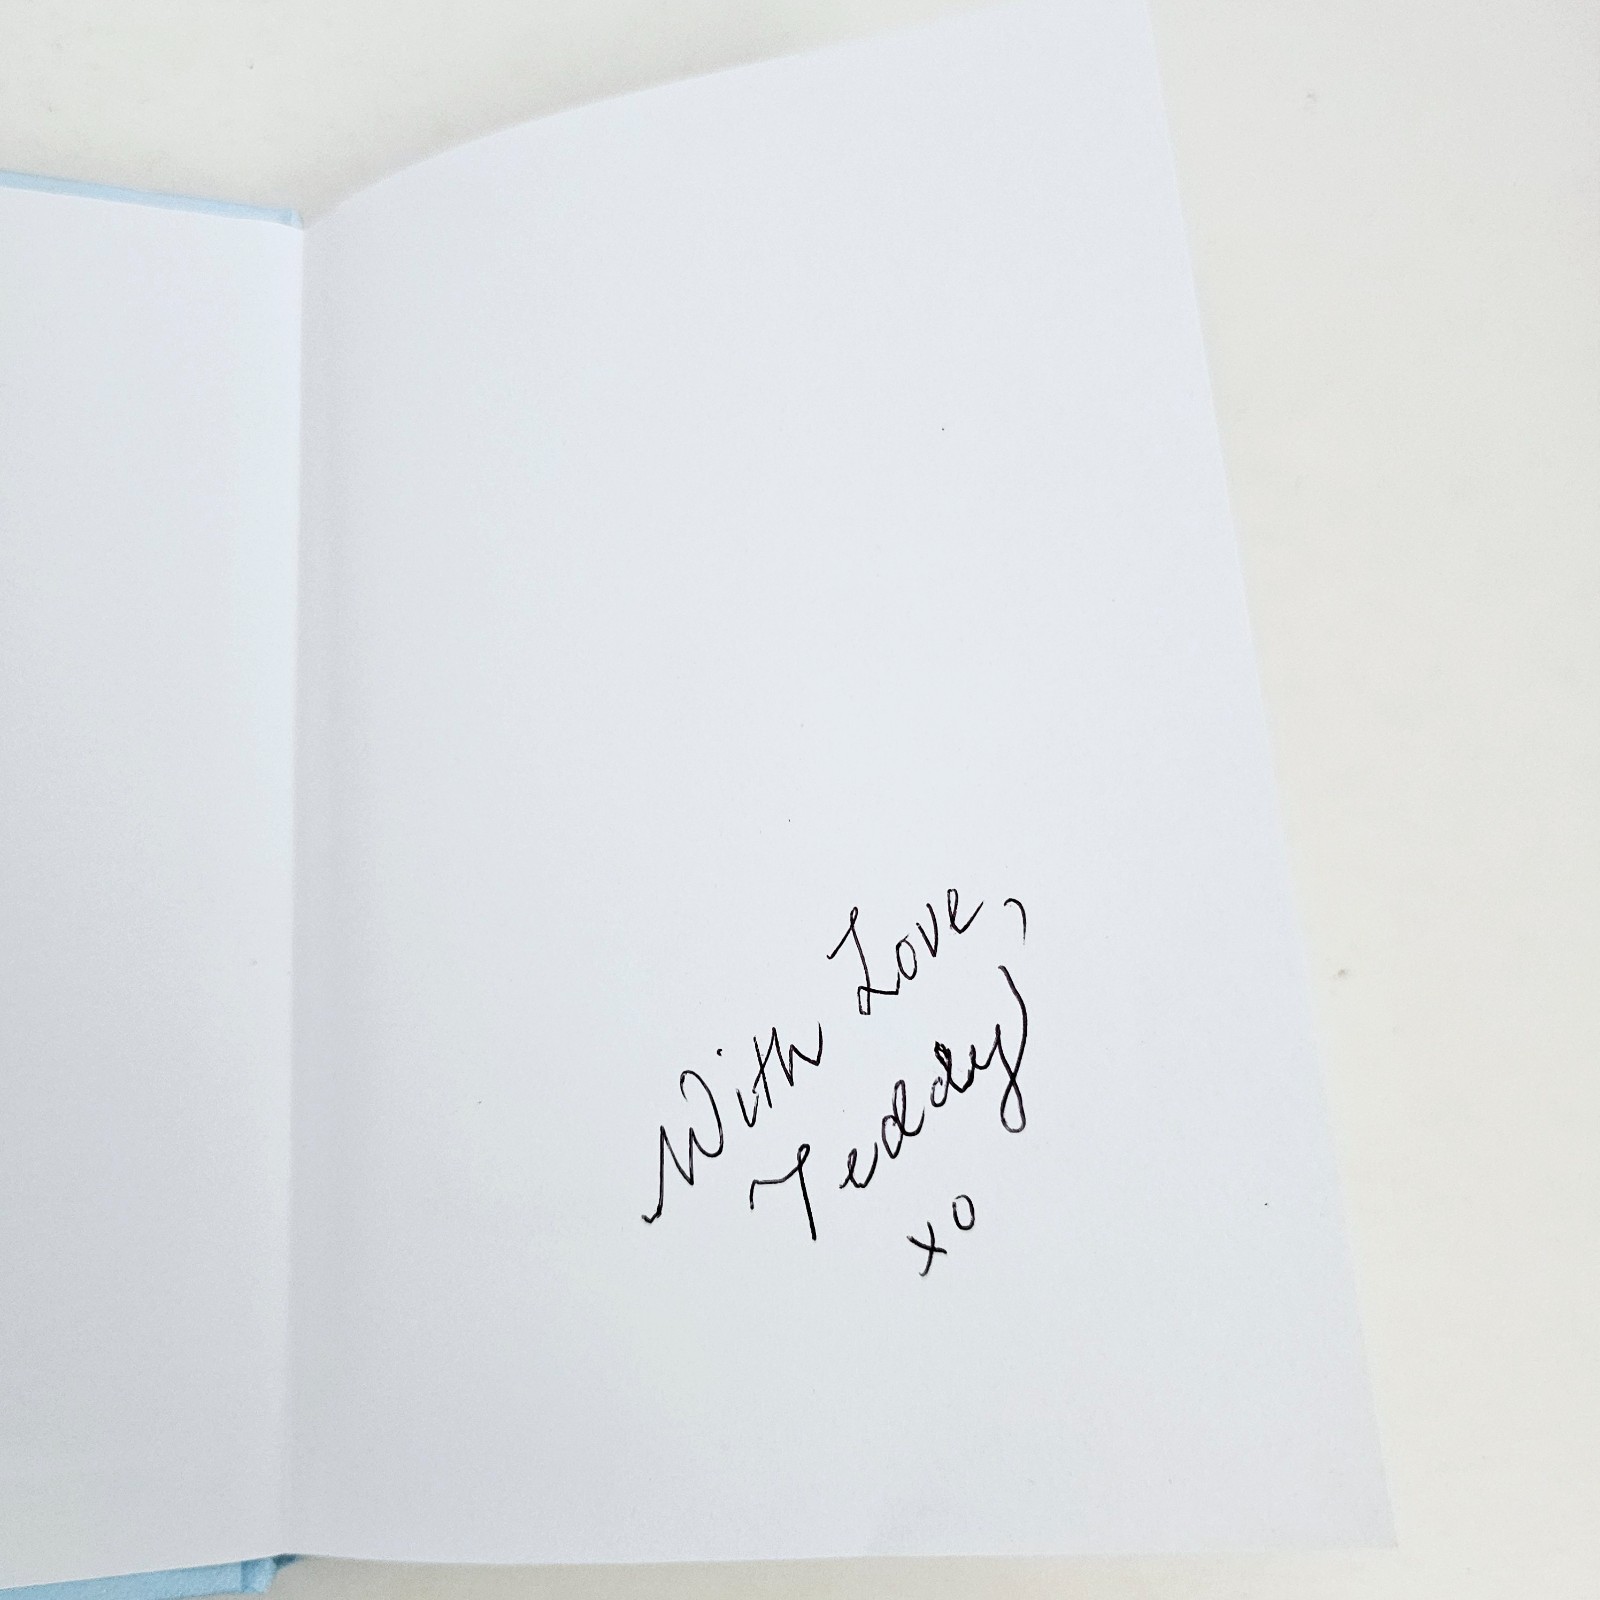 With Love,
Teddy
xo